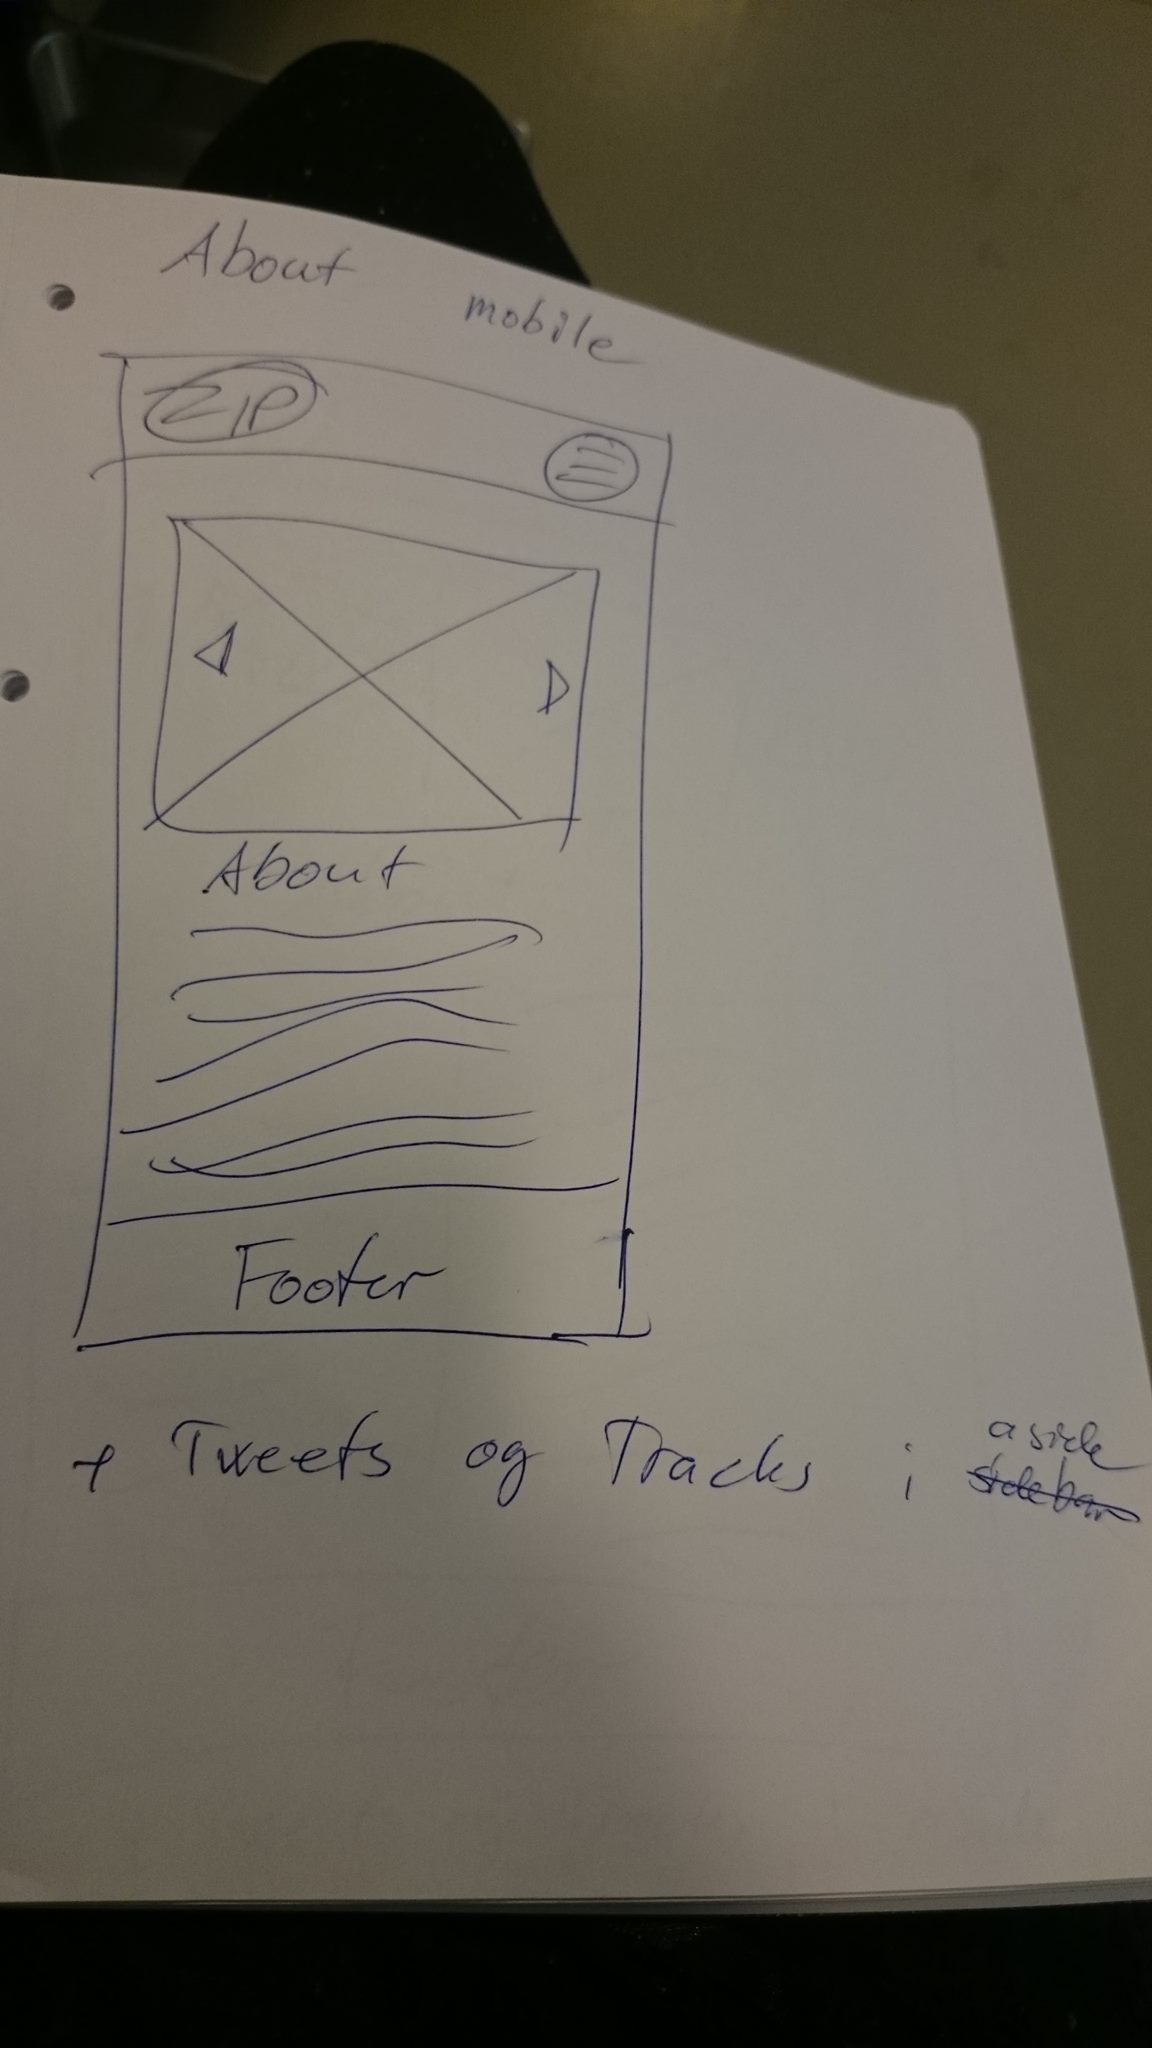 About
mobile
ZIP
About
Footer
+ Tweets og Tracks i aside
sidebar